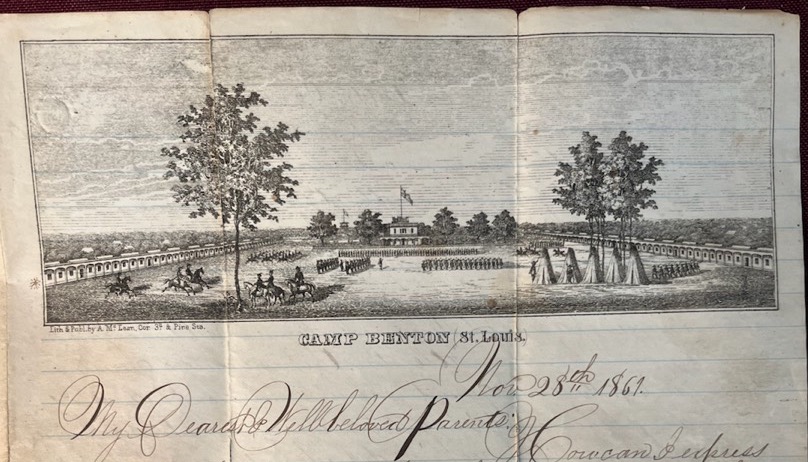 Lith & Publ. by A. Mc Lean, Cor 3d & Pine Sts.
CAMP BENTON (St. Louis.)
Nov 28th 1861.
My Dearest & Wellbeloved Parents;
How can I express